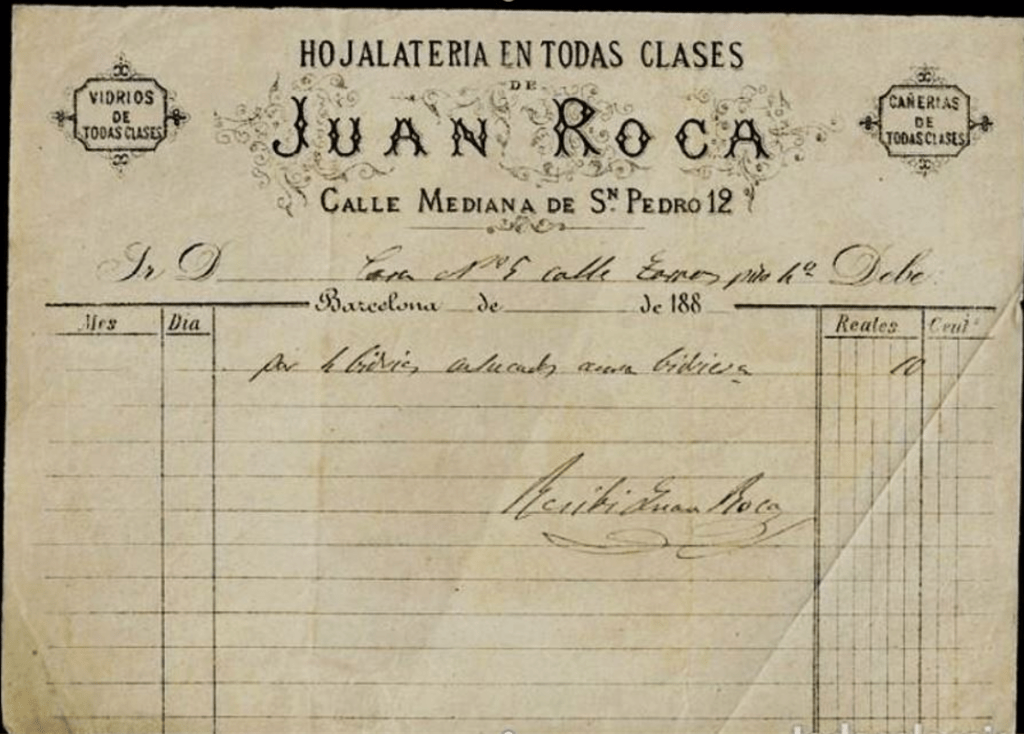 HOJALATERIA EN TODAS CLASES
DE
JUAN ROCA
CALLE MEDIANA DE Sᴺ. PEDRO 12
VIDRIOS
DE
TODAS CLASES
CAÑERIAS
DE
TODAS CLASES
Sr D Casa Nº 5 calle piso 4º Debe
Barcelona de de 188
Mes Dia Reales Centˢ
por 4 bidrios bidriera 10
Recibi Juan Roca